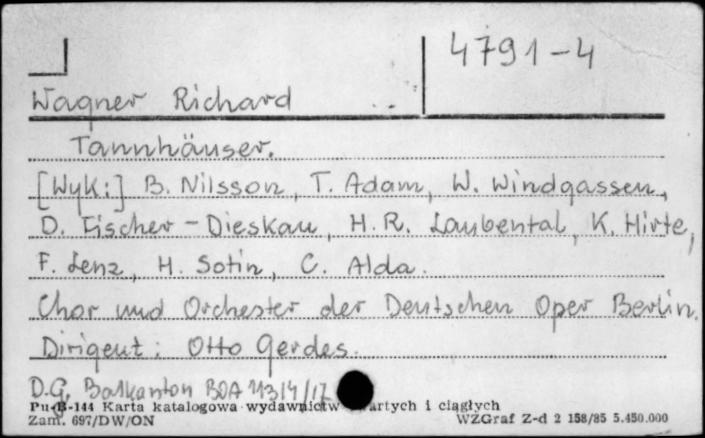 4791-4
Wagner Richard
Tannhäuser.
[Wyk:] B. Nilsson, T. Adam, W. Windgassen,
D. Fischer-Dieskau, H.R. Laubental, K. Hirte,
F. Lenz, H. Sotin, C. Alda.
Chor und Orchester der Deutschen Oper Berlin.
Dirigent: Otto Gerdes.
D.G. Balkanton BOA 1131/4/17
Pu-B-144 Karta katalogowa wydawnictw zwartych i ciągłych
Zam. 697/DW/ON WZGraf Z-d 2 158/85 5.450.000